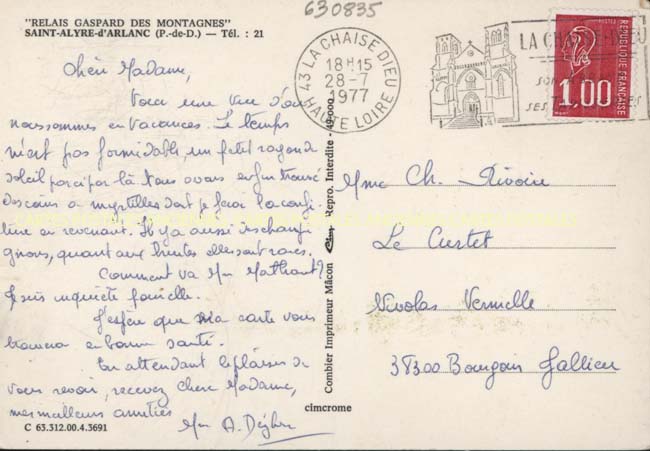 630835
"RELAIS GASPARD DES MONTAGNES"
SAINT-ALYRE-d'ARLANC (P.-de-D.) — Tél. : 21
43 LA CHAISE DIEU
18H15
28-7
1977
HAUTE LOIRE
LA CHAISE-DIEU
SON
SES
POSTES
REPUBLIQUE FRANÇAISE
1,00
Chère Madame,
Voici une vue d'où
nous sommes en vacances. Le temps
n'est pas formidable, un petit rayon de
soleil par ci par là. Nous avons enfin trouvé
des coins à myrtilles dont je ferai la confi
ture en revenant. Il y a aussi des champi
gnons, quant aux truites elles sont rares.
Comment va Mr
Je suis inquiète pour elle.
J'espère que ma carte vous
trouvera en bonne santé.
En attendant le plaisir de
vous revoir, recevez chère Madame,
mes meilleurs amitiés
Mme A.
C 63.312.00.4.3691
Combier Imprimeur Mâcon Repro. Interdite - 49.000
cimcrome
Mme Ch. Rivoire
Le Curtet
Nicolas Vermelle
38300 Bourgoin Jallieu